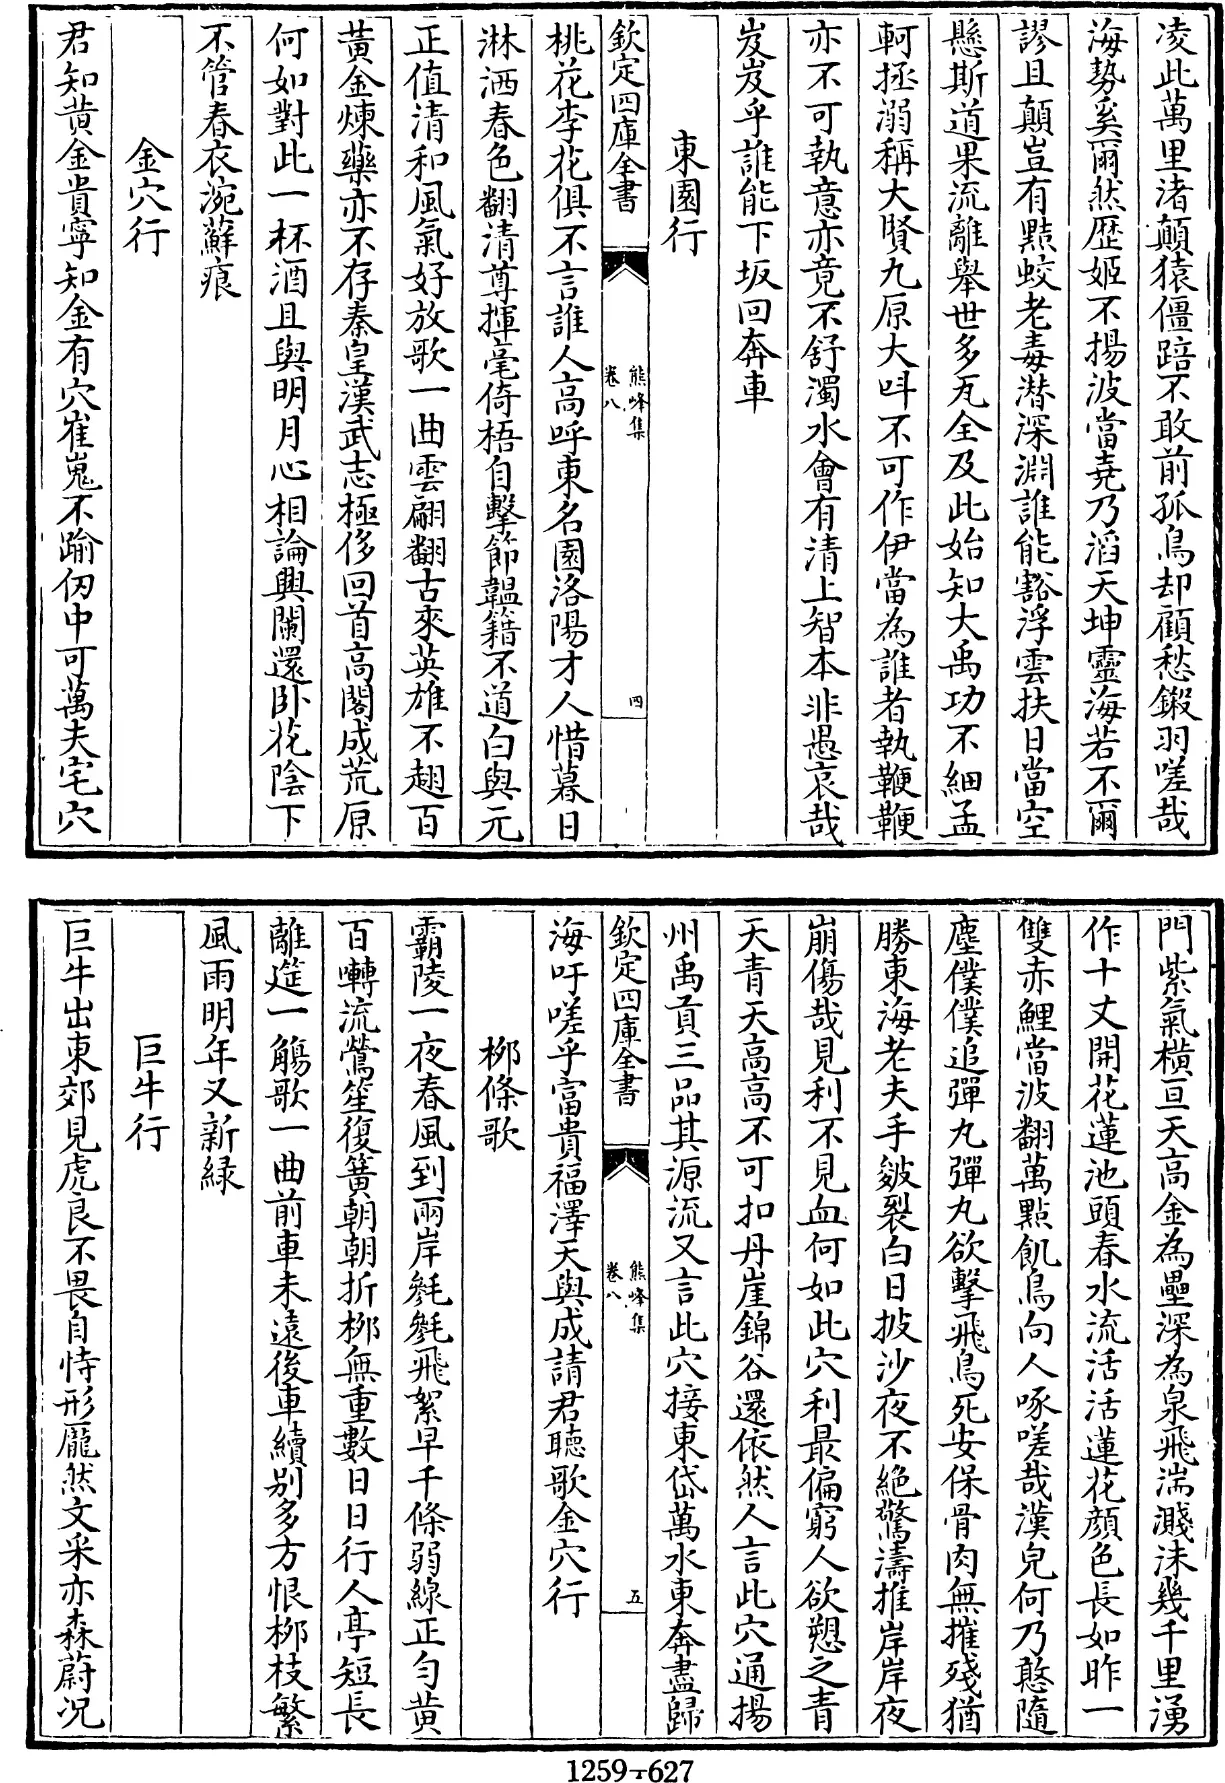 凌此萬里渚顛猿僵踣不敢前孤鳥却顧愁鎩羽嗟哉
海勢奚爾然歴姬不揚波當堯乃滔天坤靈海若不爾
謬且顛豈有黠蛟老毒潜深淵誰能豁浮雲扶日當空
懸斯道果流離舉世多瓦全及此始知大禹功不細孟
軻拯溺稱大賢九原大呌不可作伊當為誰者執鞭鞭
亦不可執意亦竟不舒濁水會有清上智本非愚哀哉
岌岌乎誰能下坂回奔車
東園行
欽定四庫全書
熊峰集
卷八
四
桃花李花俱不言誰人高呼東名園洛陽才人惜暮日
淋洒春色翻清尊揮毫倚梧自擊節韞籍不道白與元
正值清和風氣好放歌一曲雲翩翻古來英雄不趐百
黃金煉藥亦不存秦皇漢武志極侈回首高閣成荒原
何如對此一杯酒且與明月心相論興闌還卧花陰下
不管春衣涴蘚痕
金穴行
君知黄金貴寧知金有穴崔嵬不踰仞中可萬夫宅穴
門紫氣橫亘天高金為壘深為泉飛湍濺沫幾千里湧
作十丈開花蓮池頭春水流活活蓮花顔色長如昨一
雙赤鯉當波翻萬點飢鳥向人啄嗟哉漢兒何乃憨隨
塵僕僕追彈丸彈丸欲擊飛鳥死安保骨肉無摧殘猶
勝東海老夫手皴裂白日披沙夜不絶驚濤推岸岸夜
崩傷哉見利不見血何如此穴利最偏窮人欲愬之青
天青天高高不可扣丹崖錦谷還依然人言此穴通揚
州禹貢三品其源流又言此穴接東岱萬水東奔盡歸
欽定四庫全書
熊峰集
卷八
五
海吁嗟乎富貴福澤天與成請君聽歌金穴行
柳條歌
霸陵一夜春風到兩岸毿毿飛絮早千條弱線正勻黄
百囀流鶯笙復簧朝朝折柳無重數日日行人亭短長
離筵一觴歌一曲前車未遠後車續别多方恨柳枝繁
風雨明年又新緑
巨牛行
巨牛出東郊見虎良不畏自恃形龎然文采亦森蔚况
1259-627